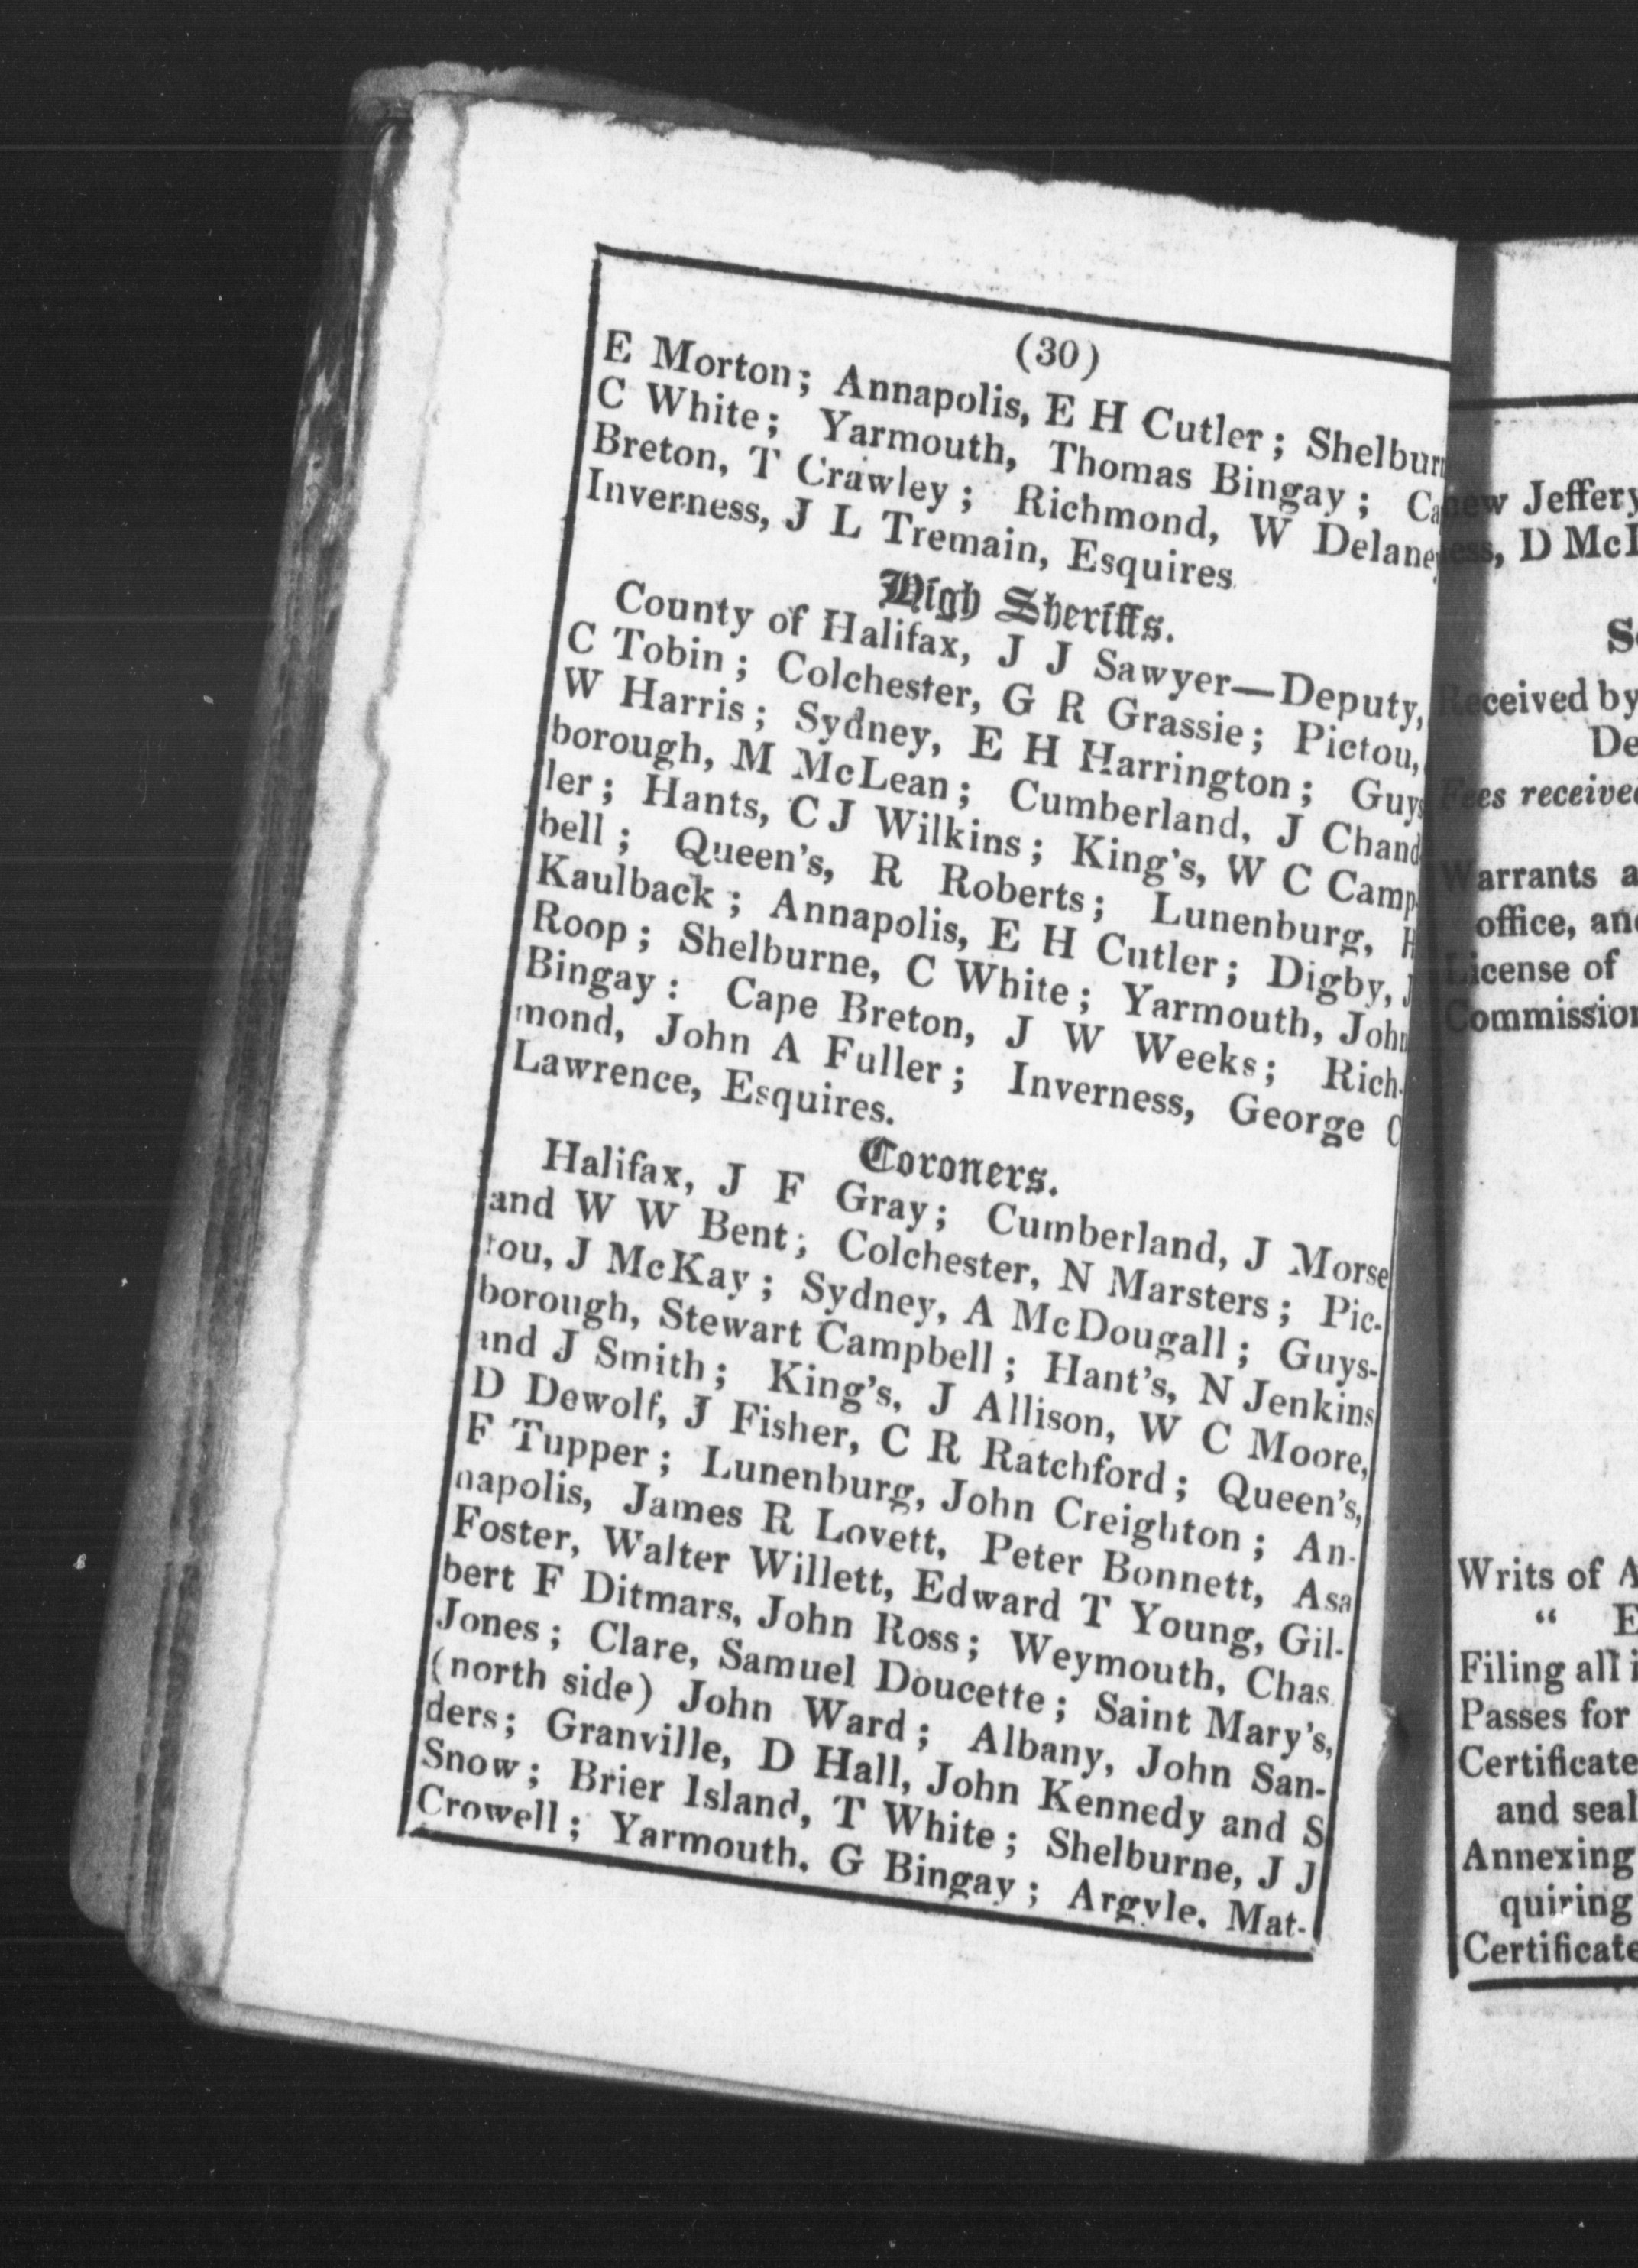 (30)
E Morton; Annapolis, E H Cutler; Shelburn
C White; Yarmouth, Thomas Bingay; Ca
Breton, T Crawley; Richmond, W Delaney
Inverness, J L Tremain, Esquires
High Sheriffs.
County of Halifax, J J Sawyer—Deputy,
C Tobin; Colchester, G R Grassie; Pictou,
W Harris; Sydney, E H Harrington; Guys
borough, M McLean; Cumberland, J Chand
ler; Hants, C J Wilkins; King's, W C Camp-
bell; Queen's, R Roberts; Lunenburg, H
Kaulback; Annapolis, E H Cutler; Digby, J
Roop; Shelburne, C White; Yarmouth, John
Bingay: Cape Breton, J W Weeks; Rich-
mond, John A Fuller; Inverness, George C
Lawrence, Esquires.
Coroners.
Halifax, J F Gray; Cumberland, J Morse
and W W Bent; Colchester, N Marsters; Pic-
tou, J McKay; Sydney, A McDougall; Guys-
borough, Stewart Campbell; Hant's, N Jenkins
and J Smith; King's, J Allison, W C Moore,
D Dewolf, J Fisher, C R Ratchford; Queen's,
F Tupper; Lunenburg, John Creighton; An-
napolis, James R Lovett, Peter Bonnett, Asa
Foster, Walter Willett, Edward T Young, Gil-
bert F Ditmars, John Ross; Weymouth, Chas
Jones; Clare, Samuel Doucette; Saint Mary's,
(north side) John Ward; Albany, John San-
ders; Granville, D Hall, John Kennedy and S
Snow; Brier Island, T White; Shelburne, J J
Crowell; Yarmouth, G Bingay; Argyle, Mat-
hew Jeffery
ess, D McL
S
Received by
De
Fees received
Warrants a
office, and
License of
Commission
Writs of A
" E
Filing all i
Passes for
Certificate
and seal
Annexing
quiring
Certificate